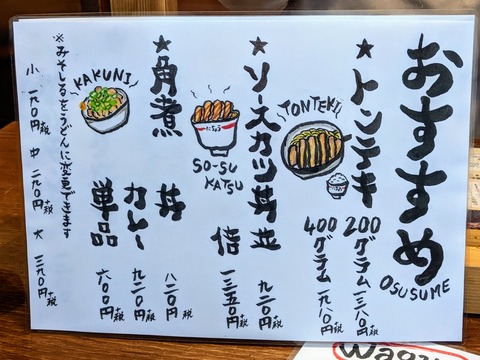 おすすめ
OSUSUME
★トンテキ
TONTEKI
200グラム 一三八〇円+税
400グラム 一九八〇円+税
★ソースカツ丼
SO-SU
KATSU
並 九二〇円+税
倍 一三五〇円+税
★角煮
KAKUNI
丼 八二〇円+税
カレー 九二〇円+税
単品 六〇〇円+税
※みそしるをうどんに変更できます
小 一九〇円+税 中 二九〇円+税 大 三九〇円+税